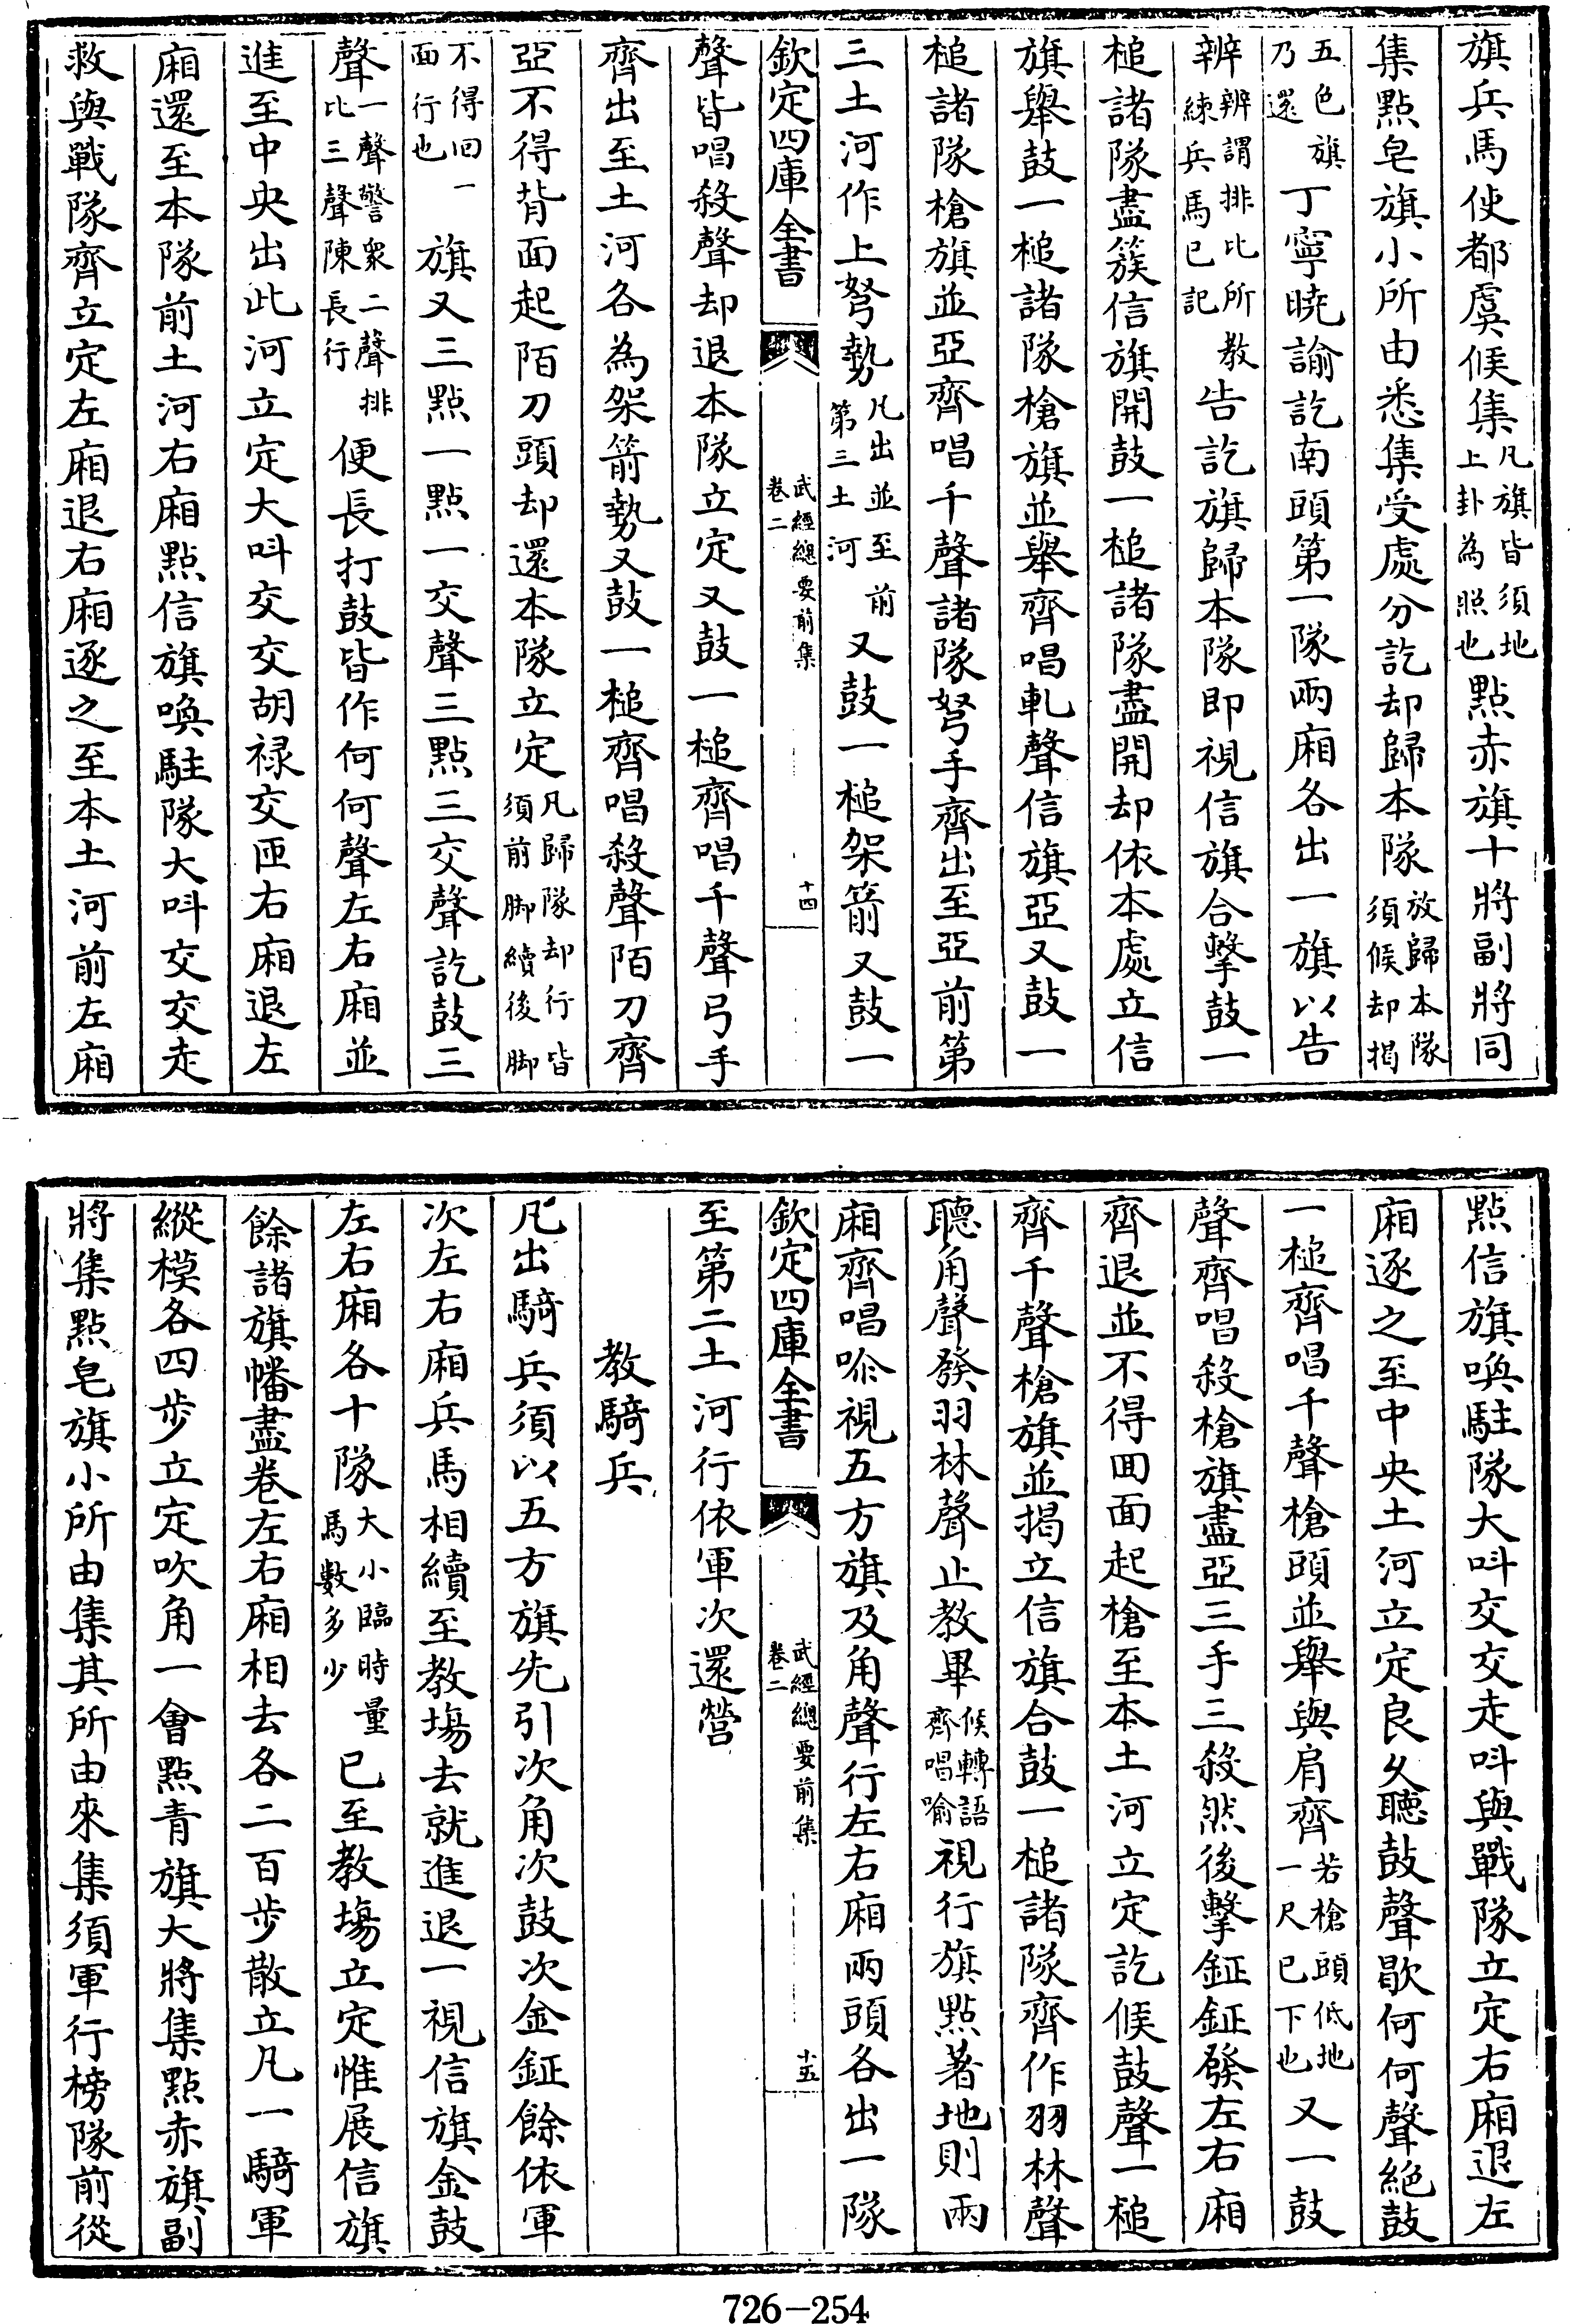 旗兵馬使都虞候集凡旗皆須地上卦為照也點赤旗十將副將同
集點皂旗小所由悉集受處分訖却歸本隊放歸本隊須候却揭
五色旗乃還丁寧曉諭訖南頭第一隊兩廂各出一旗以告
辨辨謂排比所教練兵馬已記告訖旗歸本隊即視信旗合擊鼓一
槌諸隊盡簇信旗開鼓一槌諸隊盡開却依本處立信
旗舉鼓一槌諸隊槍旗並舉齊唱軋聲信旗亞又鼓一
槌諸隊槍旗並亞齊唱千聲諸隊弩手齊出至亞前第
三土河作上弩勢凡出並至前第三土河又鼓一槌架箭又鼓一
欽定四庫全書 武經總要前集 卷二 十四
聲皆唱殺聲却退本隊立定又鼓一槌齊唱千聲弓手
齊出至土河各為架箭勢又鼓一槌齊唱殺聲陌刀齊
亞不得背面起陌刀頭却還本隊立定凡歸隊却行皆須前脚續後脚
不得回一面行也旗又三點一點一交聲三點三交聲訖鼓三
聲一聲警衆二聲排比三聲陳長行便長打鼓皆作何何聲左右廂並
進至中央出此河立定大呌交交胡祿交匝右廂退左
廂還至本隊前土河右廂點信旗喚駐隊大呌交交走
救與戰隊齊立定左廂退右廂逐之至本土河前左廂
點信旗喚駐隊大呌交交走呌與戰隊立定右廂退左
廂逐之至中央土河立定良久聽鼓聲歇何何聲絕鼓
一槌齊唱千聲槍頭並舉與肩齊若槍頭低地一尺已下也又一鼓
聲齊唱殺槍旗盡亞三手三殺然後擊鉦鉦發左右廂
齊退並不得囬面起槍至本土河立定訖候鼓聲一槌
齊千聲槍旗並揭立信旗合鼓一槌諸隊齊作羽林聲
聽角聲發羽林聲止教畢候轉語齊唱喻視行旗點著地則兩
廂齊唱喏視五方旗及角聲行左右廂兩頭各出一隊
欽定四庫全書 武經總要前集 卷二 十五
至第二土河行依軍次還營
教騎兵
凡出騎兵須以五方旗先引次角次鼓次金鉦餘依軍
次左右廂兵馬相續至教塲去就進退一視信旗金鼓
左右廂各十隊大小臨時量馬數多少已至教塲立定惟展信旗
餘諸旗幡盡卷左右廂相去各二百步散立凡一騎軍
縱模各四步立定吹角一會點青旗大將集點赤旗副
將集點皂旗小所由集其所由來集須軍行榜隊前從
726-254